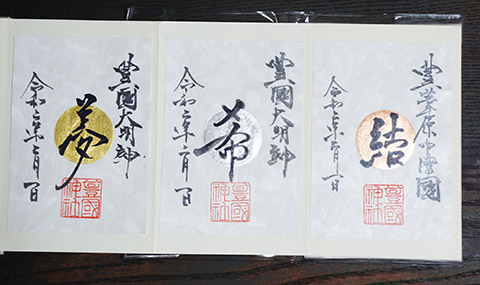 豊葦原中津國
結
令和二年二月一日
豊國神社
豊國大明神
希
令和二年二月一日
豊國神社
豊國大明神
夢
令和二年二月一日
豊國神社